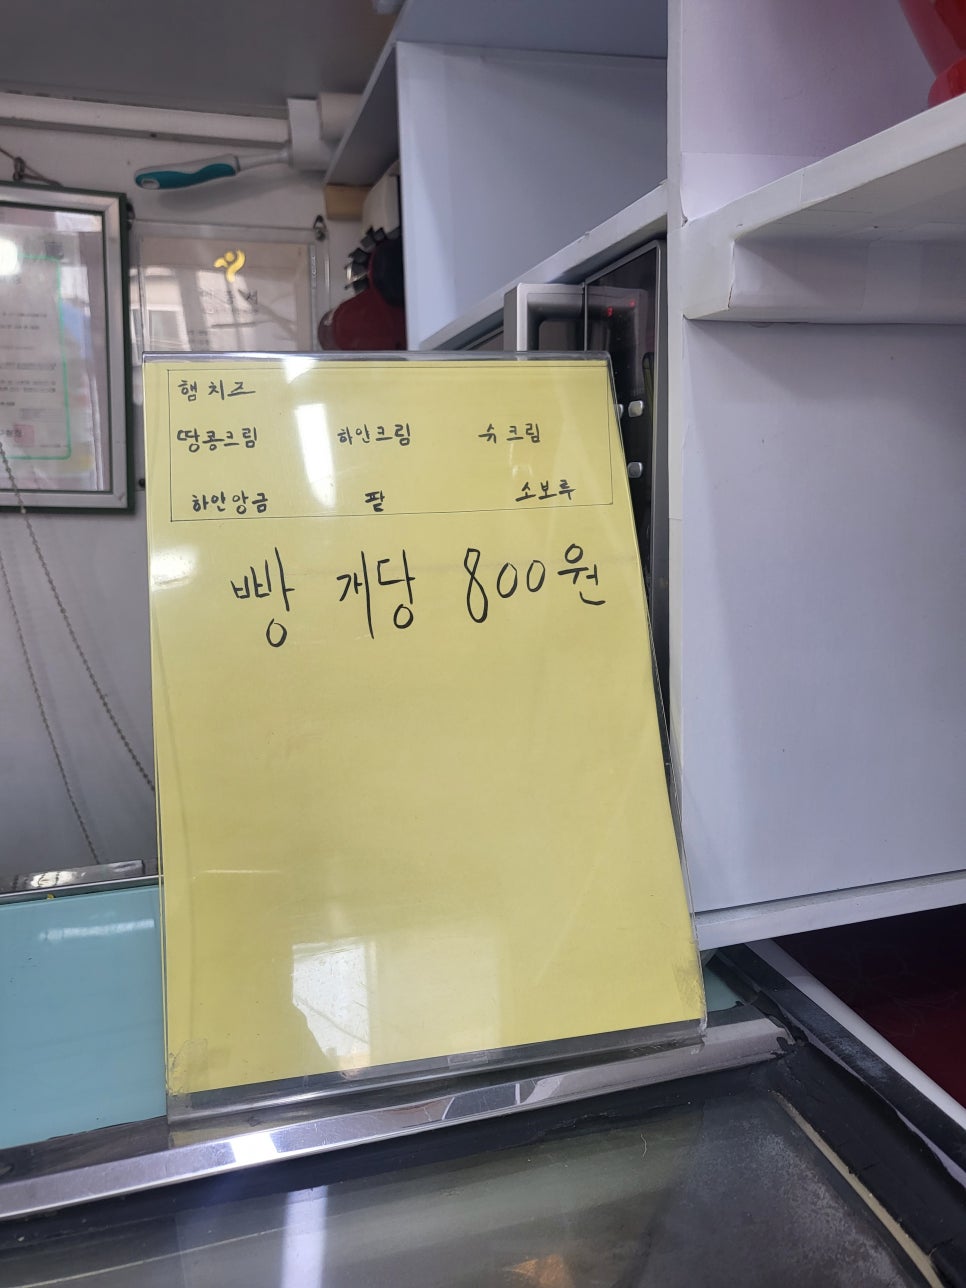 햄 치즈
땅콩크림 하얀크림 슈크림
하얀앙금 팥 소보루
빵 개당 800원